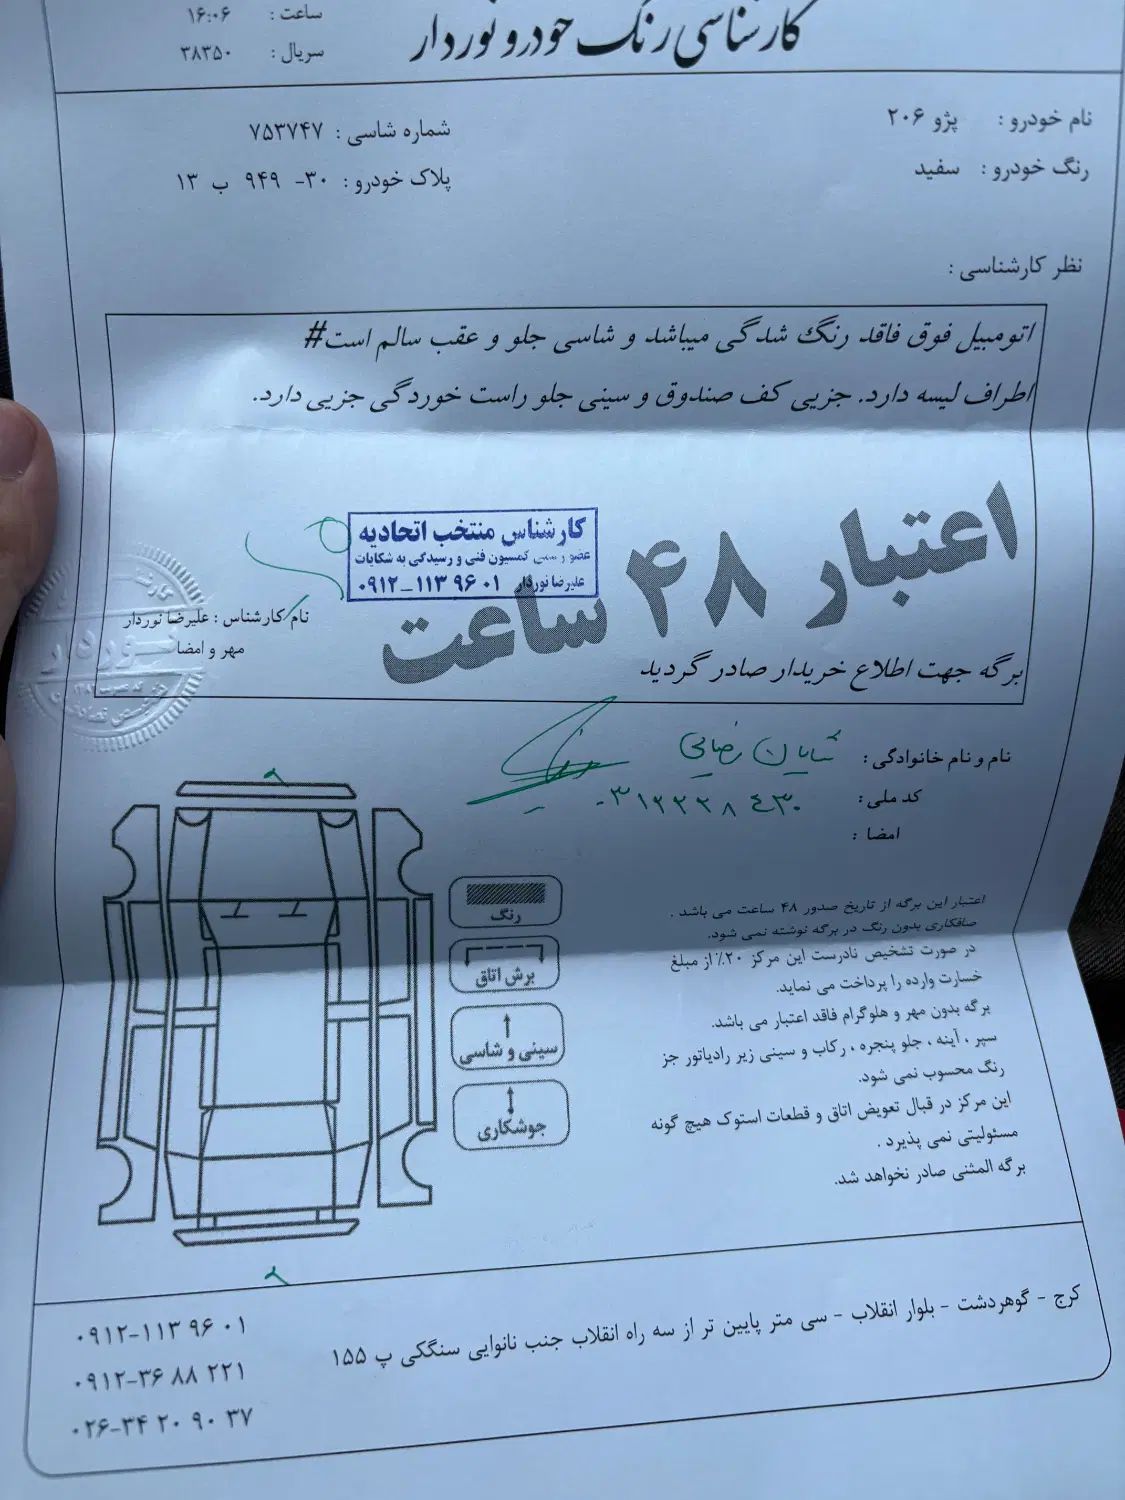 کارشناسی رنگ خودرو نوردار
ساعت : ۱۶:۰۶
سریال : ۳۸۳۵۰
نام خودرو : پژو ۲۰۶
شماره شاسی : ۷۵۳۷۴۷
رنگ خودرو : سفید
پلاک خودرو : ۳۰- ۹۴۹ ب ۱۳
نظر کارشناسی :
اتومبیل فوق فاقد رنگ شدگی میباشد و شاسی جلو و عقب سالم است#
اطراف لیسه دارد. جزیی کف صندوق و سینی جلو راست خوردگی جزیی دارد.
اعتبار ۴۸ ساعت
کارشناس منتخب اتحادیه
عضو رسمی کمسیون فنی و رسیدگی به شکایات
علیرضا نوردار ۰۹۱۲-۱۱۳ ۹۶ ۰۱
نام کارشناس : علیرضا نوردار
مهر و امضا
نوردار
برگه جهت اطلاع خریدار صادر گردید
نام و نام خانوادگی : شایان رضایی
کد ملی : ۰۳۱۲۲۲۸۴۳۰
امضا :
رنگ
برش اتاق
سینی و شاسی
جوشکاری
اعتبار این برگه از تاریخ صدور ۴۸ ساعت می باشد .
صافکاری بدون رنگ در برگه نوشته نمی شود.
در صورت تشخیص نادرست این مرکز ۲۰٪ از مبلغ
خسارت وارده را پرداخت می نماید.
برگه بدون مهر و هلوگرام فاقد اعتبار می باشد.
سپر ، آینه ، جلو پنجره ، رکاب و سینی زیر رادیاتور جز
رنگ محسوب نمی شود.
این مرکز در قبال تعویض اتاق و قطعات استوک هیچ گونه
مسئولیتی نمی پذیرد .
برگه المثنی صادر نخواهد شد.
کرج - گوهردشت - بلوار انقلاب - سی متر پایین تر از سه راه انقلاب جنب نانوایی سنگکی پ ۱۵۵
۰۹۱۲-۱۱۳ ۹۶ ۰۱
۰۹۱۲-۳۶ ۸۸ ۲۲۱
۰۲۶-۳۴ ۲۰ ۹۰ ۳۷